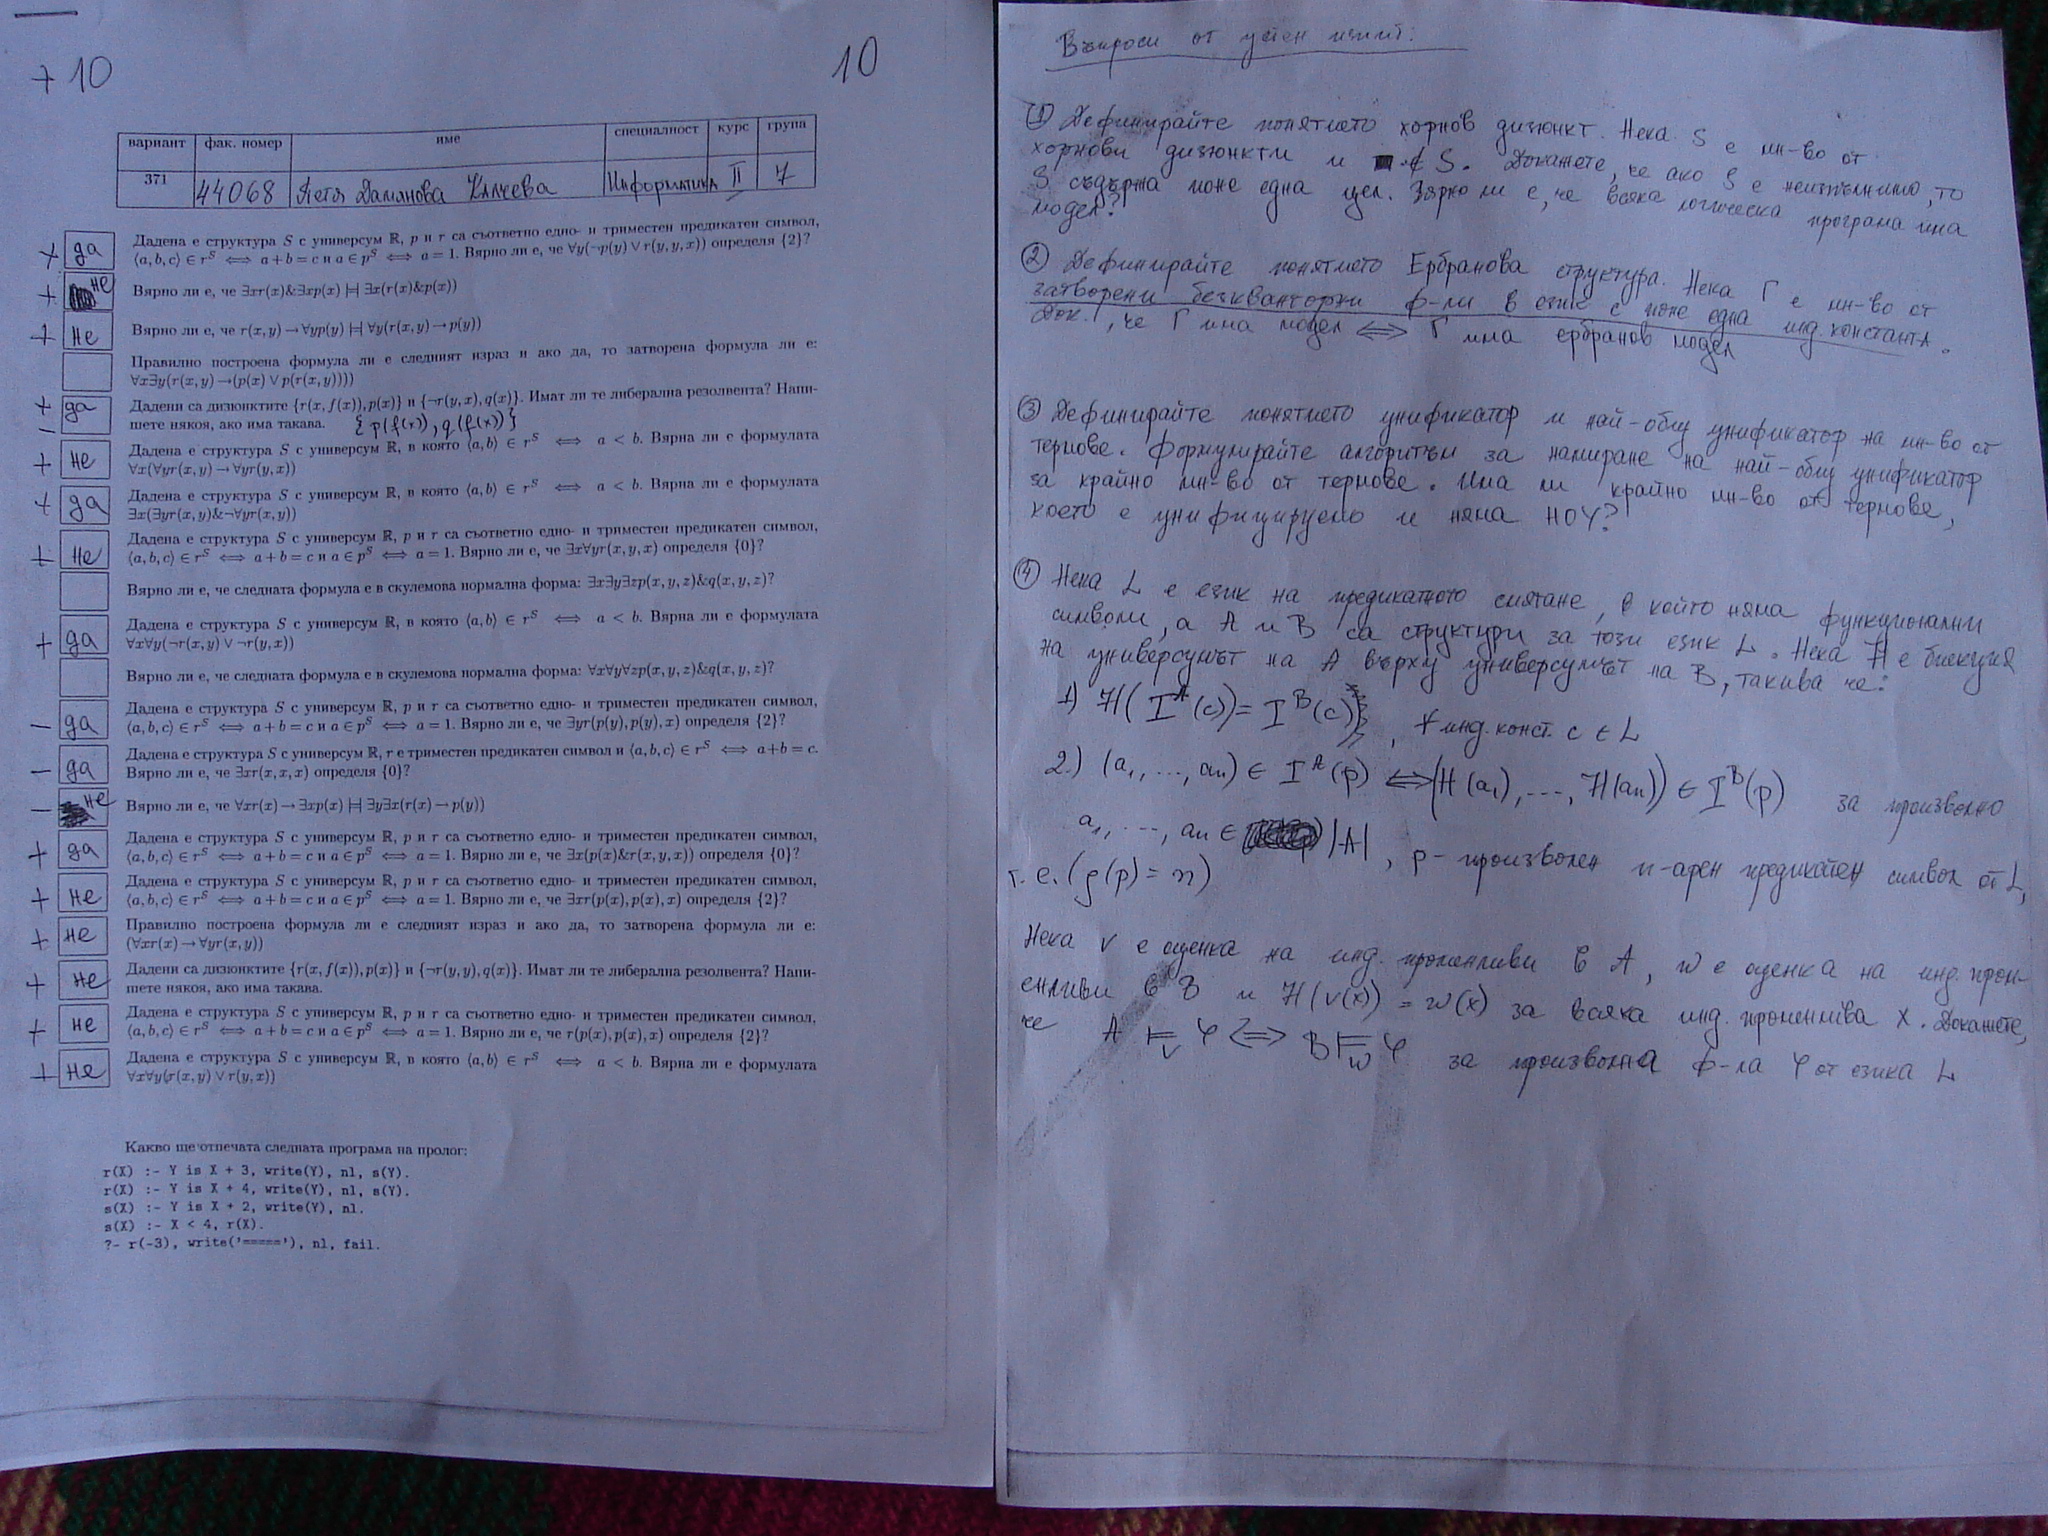 + 10
10
вариант фак. номер име специалност курс група
371 44068 Петя Дамянова Информатика II 7
+ да Дадена е структура S с универсум ℝ, p и r са съответно едно- и триместен предикатен символ,
⟨a, b, c⟩ ∈ rˢ ⟺ a + b = c и a ∈ pˢ ⟺ a = 1. Вярно ли е, че ∀y(¬p(y) ∨ r(y, y, x)) определя {2}?
+ не Вярно ли е, че ∃xr(x)&∃xp(x) |=| ∃x(r(x)&p(x))
+ не Вярно ли е, че r(x, y) → ∀yp(y) |=| ∀y(r(x, y) → p(y))
Правилно построена формула ли е следният израз и ако да, то затворена формула ли е:
∀x∃y(r(x, y) → (p(x) ∨ p(r(x, y))))
+ да Дадени са дизюнктите {r(x, f(x)), p(x)} и {¬r(y, x), q(x)}. Имат ли те либерална резолвента? Напи-
− шете някоя, ако има такава. {p(f(x)), q(f(x))}
+ не Дадена е структура S с универсум ℝ, в която ⟨a, b⟩ ∈ rˢ ⟺ a < b. Вярна ли е формулата
∀x(∀yr(x, y) → ∀yr(y, x))
+ да Дадена е структура S с универсум ℝ, в която ⟨a, b⟩ ∈ rˢ ⟺ a < b. Вярна ли е формулата
∃x(∃yr(x, y)&¬∀yr(x, y))
+ не Дадена е структура S с универсум ℝ, p и r са съответно едно- и триместен предикатен символ,
⟨a, b, c⟩ ∈ rˢ ⟺ a + b = c и a ∈ pˢ ⟺ a = 1. Вярно ли е, че ∃x∀yr(x, y, x) определя {0}?
Вярно ли е, че следната формула е в скулемова нормална форма: ∃x∃y∃zp(x, y, z)&q(x, y, z)?
+ да Дадена е структура S с универсум ℝ, в която ⟨a, b⟩ ∈ rˢ ⟺ a < b. Вярна ли е формулата
∀x∀y(¬r(x, y) ∨ ¬r(y, x))
Вярно ли е, че следната формула е в скулемова нормална форма: ∀x∀y∀zp(x, y, z)&q(x, y, z)?
− да Дадена е структура S с универсум ℝ, p и r са съответно едно- и триместен предикатен символ,
⟨a, b, c⟩ ∈ rˢ ⟺ a + b = c и a ∈ pˢ ⟺ a = 1. Вярно ли е, че ∃yr(p(y), p(y), x) определя {2}?
− да Дадена е структура S с универсум ℝ, r е триместен предикатен символ и ⟨a, b, c⟩ ∈ rˢ ⟺ a+b = c.
Вярно ли е, че ∃xr(x, x, x) определя {0}?
− не Вярно ли е, че ∀xr(x) → ∃xp(x) |=| ∃y∃x(r(x) → p(y))
+ да Дадена е структура S с универсум ℝ, p и r са съответно едно- и триместен предикатен символ,
⟨a, b, c⟩ ∈ rˢ ⟺ a + b = c и a ∈ pˢ ⟺ a = 1. Вярно ли е, че ∃x(p(x)&r(x, y, x)) определя {0}?
+ не Дадена е структура S с универсум ℝ, p и r са съответно едно- и триместен предикатен символ,
⟨a, b, c⟩ ∈ rˢ ⟺ a + b = c и a ∈ pˢ ⟺ a = 1. Вярно ли е, че ∃xr(p(x), p(x), x) определя {2}?
+ не Правилно построена формула ли е следният израз и ако да, то затворена формула ли е:
(∀xr(x) → ∀yr(x, y))
+ не Дадени са дизюнктите {r(x, f(x)), p(x)} и {¬r(y, y), q(x)}. Имат ли те либерална резолвента? Напи-
шете някоя, ако има такава.
+ не Дадена е структура S с универсум ℝ, p и r са съответно едно- и триместен предикатен символ,
⟨a, b, c⟩ ∈ rˢ ⟺ a + b = c и a ∈ pˢ ⟺ a = 1. Вярно ли е, че r(p(x), p(x), x) определя {2}?
+ не Дадена е структура S с универсум ℝ, в която ⟨a, b⟩ ∈ rˢ ⟺ a < b. Вярна ли е формулата
∀x∀y(r(x, y) ∨ r(y, x))
Какво ще отпечата следната програма на пролог:
r(X) :- Y is X + 3, write(Y), nl, s(Y).
r(X) :- Y is X + 4, write(Y), nl, s(Y).
s(X) :- Y is X + 2, write(Y), nl.
s(X) :- X < 4, r(X).
?- r(-3), write('====='), nl, fail.
Въпроси от устен изпит:
① Дефинирайте понятието хорнов дизюнкт. Нека S е мн-во от
хорнови дизюнкти и ■ ∉ S. Докажете, че ако S е неизпълнимо, то
S съдържа поне една цел. Вярно ли е, че всяка логическа програма има
модел?
② Дефинирайте понятието Ербранова структура. Нека Γ е мн-во от
затворени безкванторни ф-ли в език с поне една инд. константа.
Док., че Γ има модел ⟺ Γ има ербранов модел
③ Дефинирайте понятието унификатор и най-общ унификатор на мн-во от
термове. Формулирайте алгоритъм за намиране на най-общ унификатор
за крайно мн-во от термове. Има ли крайно мн-во от термове,
което е унифицируемо и няма НОУ?
④ Нека L е език на предикатното смятане, в който няма функционални
символи, а A и B са структури за този език L. Нека H е биекция
на универсумът на A върху универсумът на B, такива че:
1) H(Iᴬ(c)) = Iᴮ(c), ∀ инд. конст. c ∈ L
2.) (a₁, ..., an) ∈ Iᴬ(p) ⟺ (H(a₁), ..., H(an)) ∈ Iᴮ(p) за произволно
a₁, ..., an ∈ |A|, p - произволен n-арен предикатен символ от L,
т.е. (ρ(p) = n)
Нека v е оценка на инд. променливи в A, w е оценка на инд. пром-
енливи в B и H(v(x)) = w(x) за всяка инд. променлива x. Докажете,
че A ⊨ᵥ φ ⟺ B ⊨w φ за произволна ф-ла φ от езика L